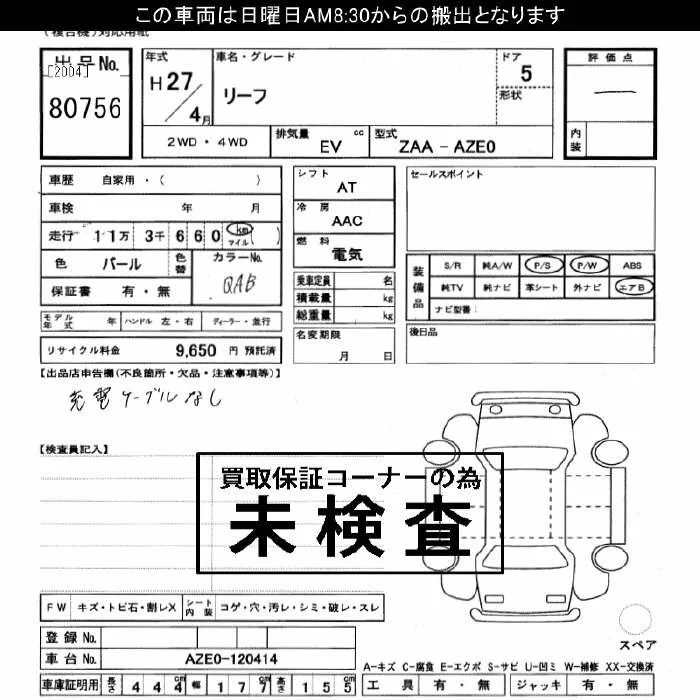 この車両は日曜日AM8:30からの搬出となります
(複合機)対応用紙
出品No.
[2004]
80756
年式
H27/4月
車名・グレード
リーフ
ドア
5
形状
2WD・4WD
排気量 cc
EV
型式
ZAA－AZE0
評価点
―
内装
車歴 自家用・( )
車検 年 月
走行 11万 3千 660 km マイル ( )
色 パール 色替
カラーNo.
QAB
保証書 有・無
モデル年式 年 ハンドル 左・右 ディーラー・並行
リサイクル料金 9,650 円 預託済
シフト
AT
冷房
AAC
燃料
電気
乗車定員 名
積載量 kg
総重量 kg
名変期限
月 日
セールスポイント
装備品
S/R 純A/W P/S P/W ABS
純TV 純ナビ 革シート 外ナビ エアB
ナビ型番:
後日品
【出品店申告欄(不良箇所・欠品・注意事項等)】
充電ケーブルなし
【検査員記入】
買取保証コーナーの為
未検査
FW キズ・トビ石・割レX シート内装 コゲ・穴・汚レ・シミ・破レ・スレ
登録No.
車台No. AZE0-120414
車庫証明用 長さ 444cm 幅 177cm 高さ 155cm
スペア
A-キズ C-腐食 E-エクボ S-サビ U-凹ミ W-補修 XX-交換済
工具 有・無 ジャッキ 有・無